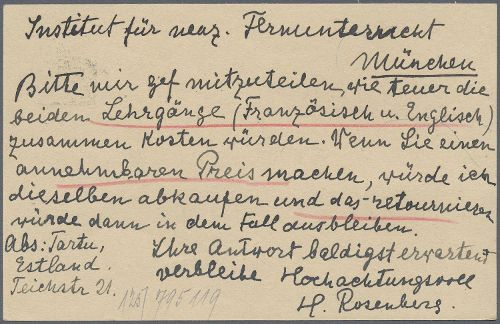 Institut für neuz. Fernunterricht
München
Bitte mir gef mitzuteilen, wie teuer die
beiden Lehrgänge (Französisch u. Englisch)
zusammen kosten würden. Wenn Sie einen
annehmbaren Preis machen, würde ich
dieselben abkaufen und das retournieren
würde dann in dem Fall ausbleiben.
Abs: Tartu, Ihre Antwort baldigst erwartend
Estland. verbleibe Hochachtungsvoll
Teichstr 21. H. Rosenberg.
795119